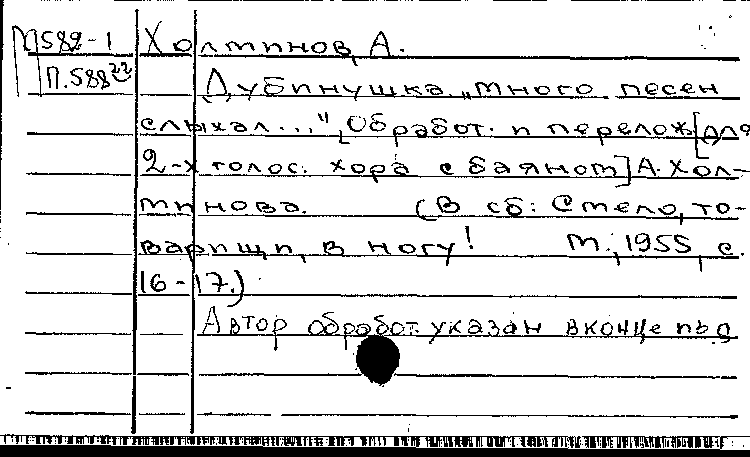 М582-1 Холминов, А.
П.588²²
Дубинушка. „Много песен
слыхал...", Обработ. и перелож [для
2-х голос. хора с баяном] А. Хол-
минова. (В сб: Смело, то-
варищи, в ногу! М., 1955, с.
16-17.)
Автор обработ. указан в конце